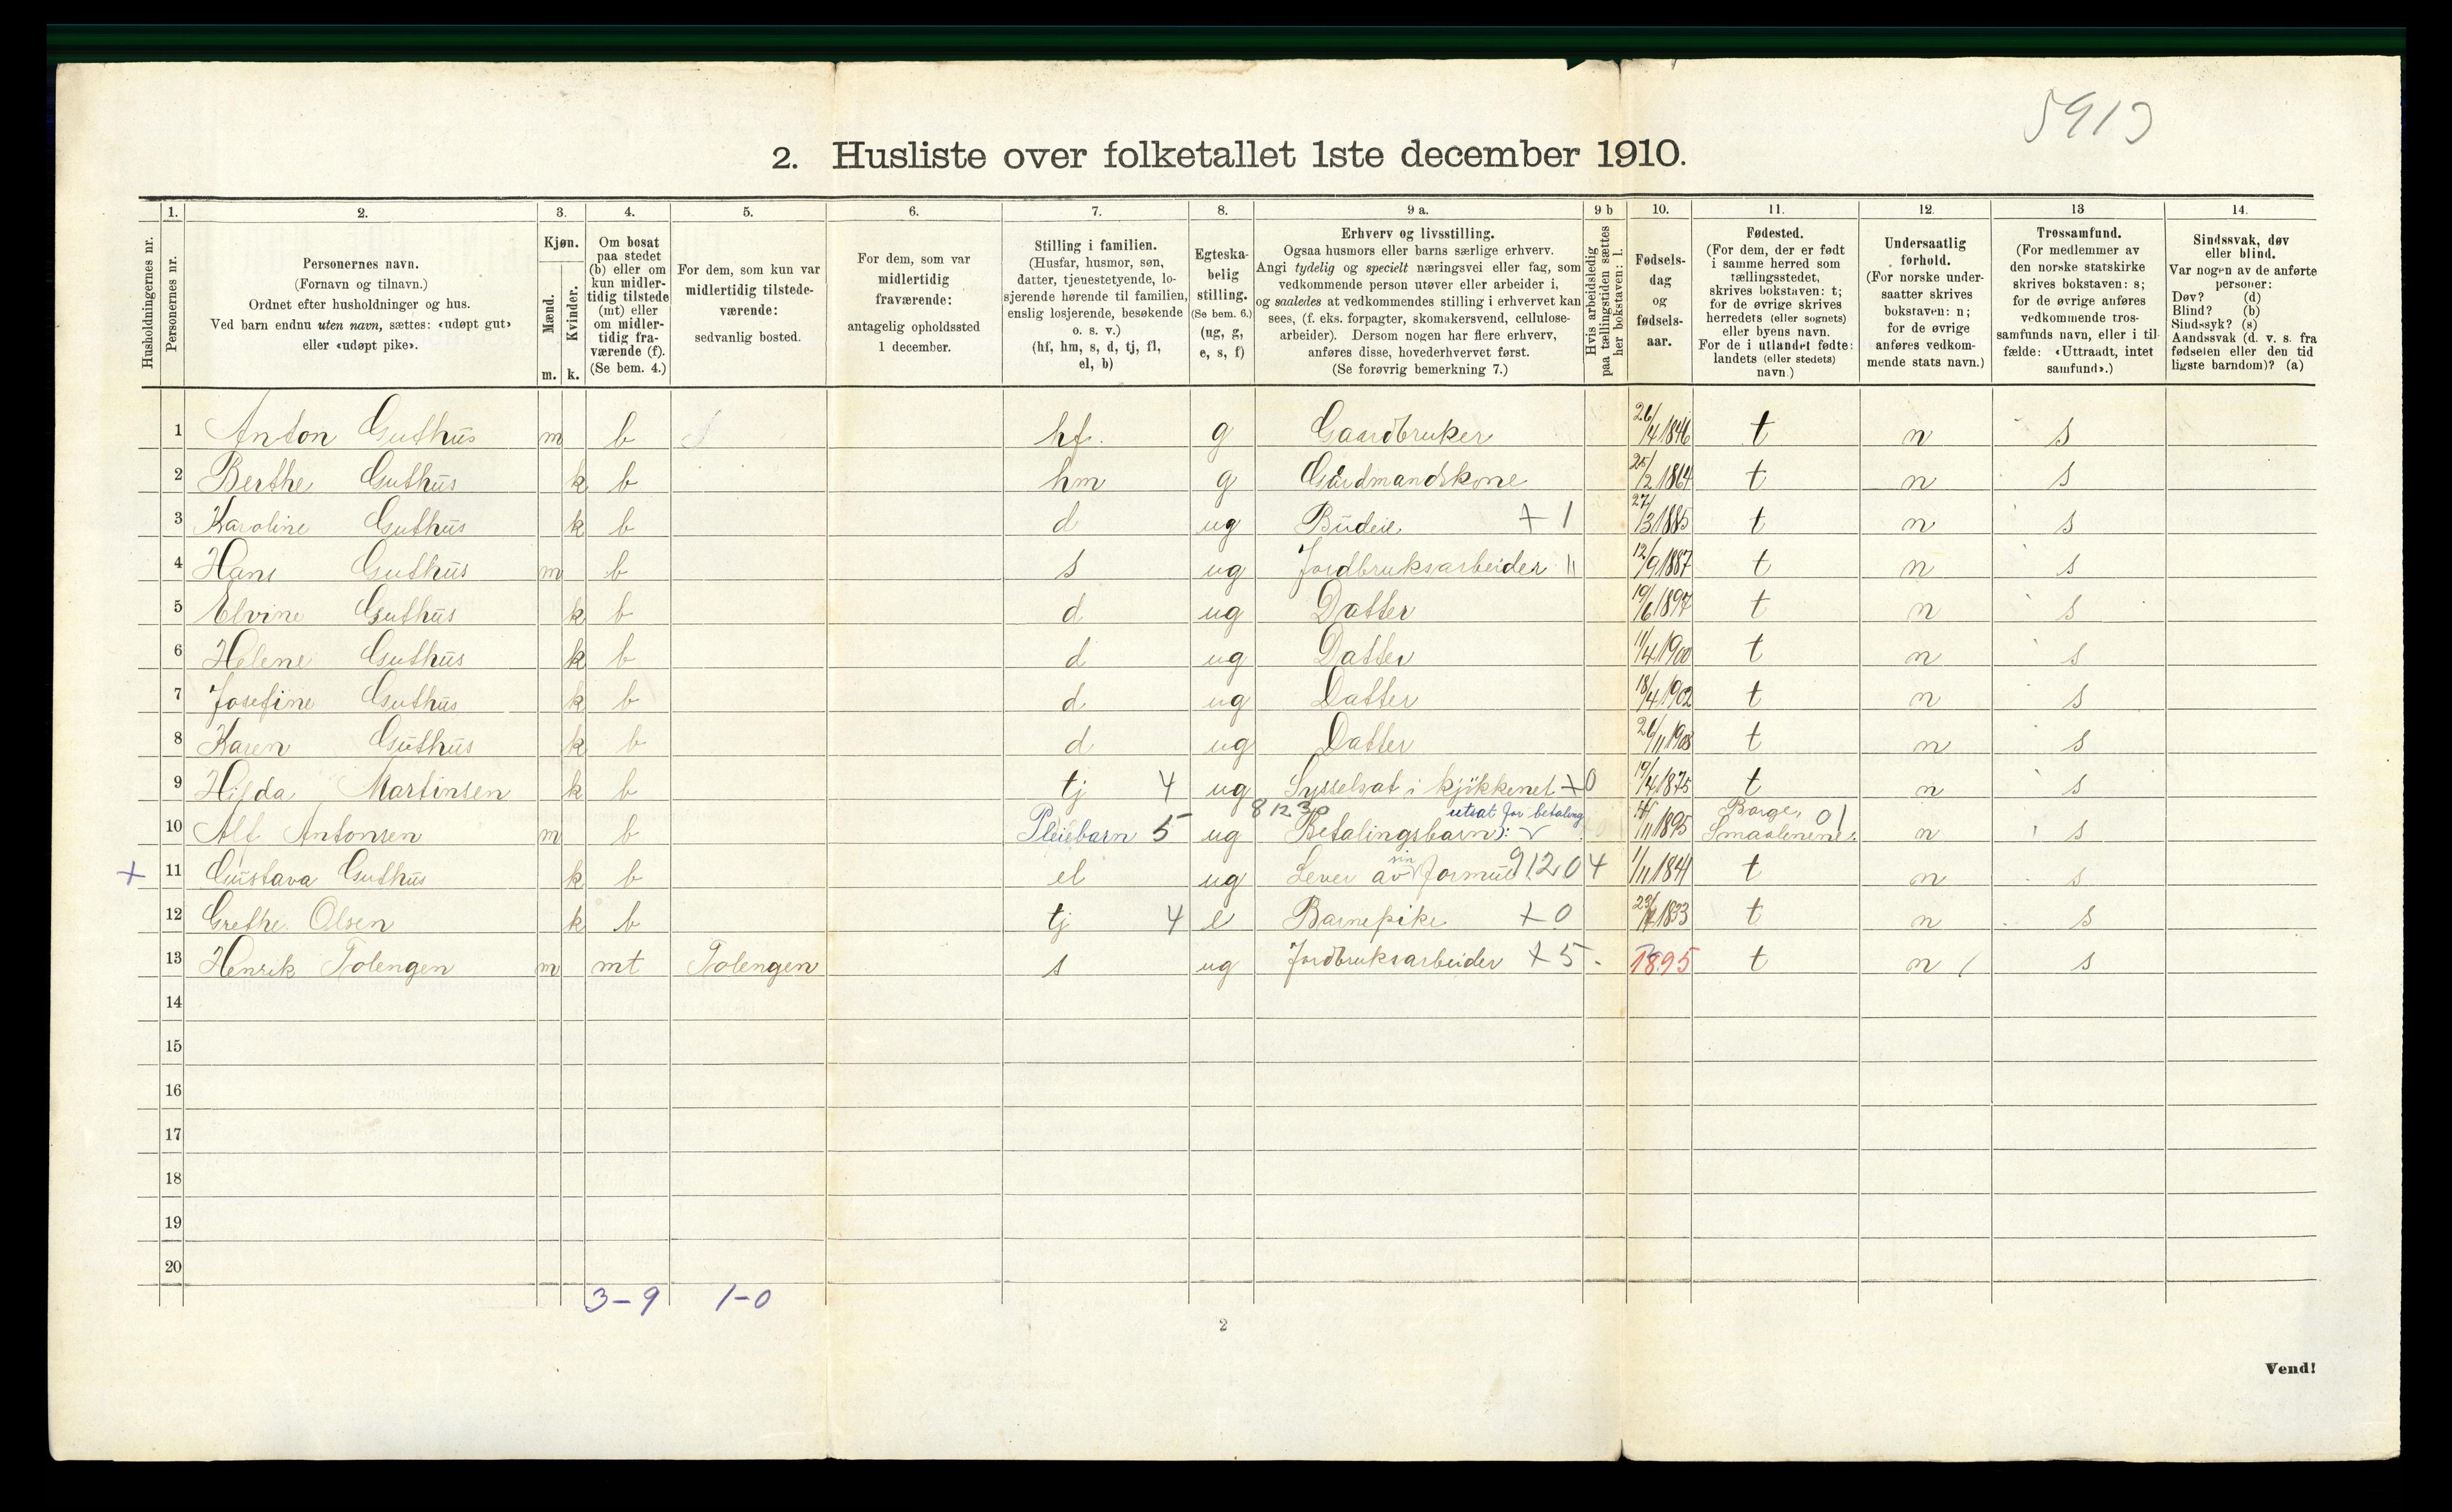 5913
2. Husliste over folketallet 1ste december 1910.
Husholdningernes nr.
1. Personernes nr.
2. Personernes navn.
(Fornavn og tilnavn.)
Ordnet efter husholdninger og hus.
Ved barn endnu uten navn, sættes: «udøpt gut»
eller «udøpt pike».
3. Kjøn.
Mænd. m.
Kvinder. k.
4. Om bosat
paa stedet
(b) eller om
kun midler-
tidig tilstede
(mt) eller
om midler-
tidig fra-
værende (f).
(Se bem. 4.)
5. For dem, som kun var
midlertidig tilstede-
værende:
sedvanlig bosted.
6. For dem, som var
midlertidig
fraværende:
antagelig opholdssted
1 december.
7. Stilling i familien.
(Husfar, husmor, søn,
datter, tjenestetyende, lo-
sjerende hørende til familien,
enslig losjerende, besøkende
o. s. v.)
(hf, hm, s, d, tj, fl,
el, b)
8. Egteska-
belig
stilling.
(Se bem. 6.)
(ug, g,
e, s, f)
9 a. Erhverv og livsstilling.
Ogsaa husmors eller barns særlige erhverv.
Angi tydelig og specielt næringsvei eller fag, som
vedkommende person utøver eller arbeider i,
og saaledes at vedkommendes stilling i erhvervet kan
sees, (f. eks. forpagter, skomakersvend, cellulose-
arbeider). Dersom nogen har flere erhverv,
anføres disse, hovederhvervet først.
(Se forøvrig bemerkning 7.)
9 b Hvis arbeidsledig
paa tællingstiden sættes
her bokstaven: l.
10. Fødsels-
dag
og
fødsels-
aar.
11. Fødested.
(For dem, der er født
i samme herred som
tællingsstedet,
skrives bokstaven: t;
for de øvrige skrives
herredets (eller sognets)
eller byens navn.
For de i utlandet fødte:
landets (eller stedets)
navn.)
12. Undersaatlig
forhold.
(For norske under-
saatter skrives
bokstaven: n;
for de øvrige
anføres vedkom-
mende stats navn.)
13 Trossamfund.
(For medlemmer av
den norske statskirke
skrives bokstaven: s;
for de øvrige anføres
vedkommende tros-
samfunds navn, eller i til-
fælde: «Uttraadt, intet
samfund».)
14. Sindssvak, døv
eller blind.
Var nogen av de anførte
personer:
Døv? (d)
Blind? (b)
Sindssyk? (s)
Aandssvak (d. v. s. fra
fødselen eller den tid
ligste barndom)? (a)
1 Anton Guthus m b hf. g Gaardbruker 26/4 1846 t n s
2 Berthe Guthus k b hm g Gårdmandskone 25/2 1864 t n s
3 Karoline Guthus k b d ug Budeie + 1 27/3 1885 t n s
4 Hans Guthus m b s ug Jordbruksarbeider 11 12/9 1887 t n s
5 Elvine Guthus k b d ug Datter 19/6 1897 t n s
6 Helene Guthus k b d ug Datter 11/4 1900 t n s
7 Josefine Guthus k b d ug Datter 18/4 1902 t n s
8 Karen Guthus k b d ug Datter 26/11 1908 t n s
9 Hilda Martinsen k b tj 4 ug Sysselsat i kjøkkenet + 0 19/4 1875 t n s
10 Alf Antonsen m b Pleiebarn 5 ug 8 12 30 Betalingsbarn): utsat for betaling /11 1895 Borge, Smaalenene. 01 n s
+ 11 Gustava Guthus k b el ug Lever av sin formue 912 04 1/11 1841 t n s
12 Grethe Olsen k b tj 4 e Barnepike + 0 1833 t n s
13 Henrik Tolengen m mt Tolengen s ug Jordbruksarbeider + 5 - 1895 t n / s
14
15
16
17
18
19
20
3-9 1-0
2
Vend!